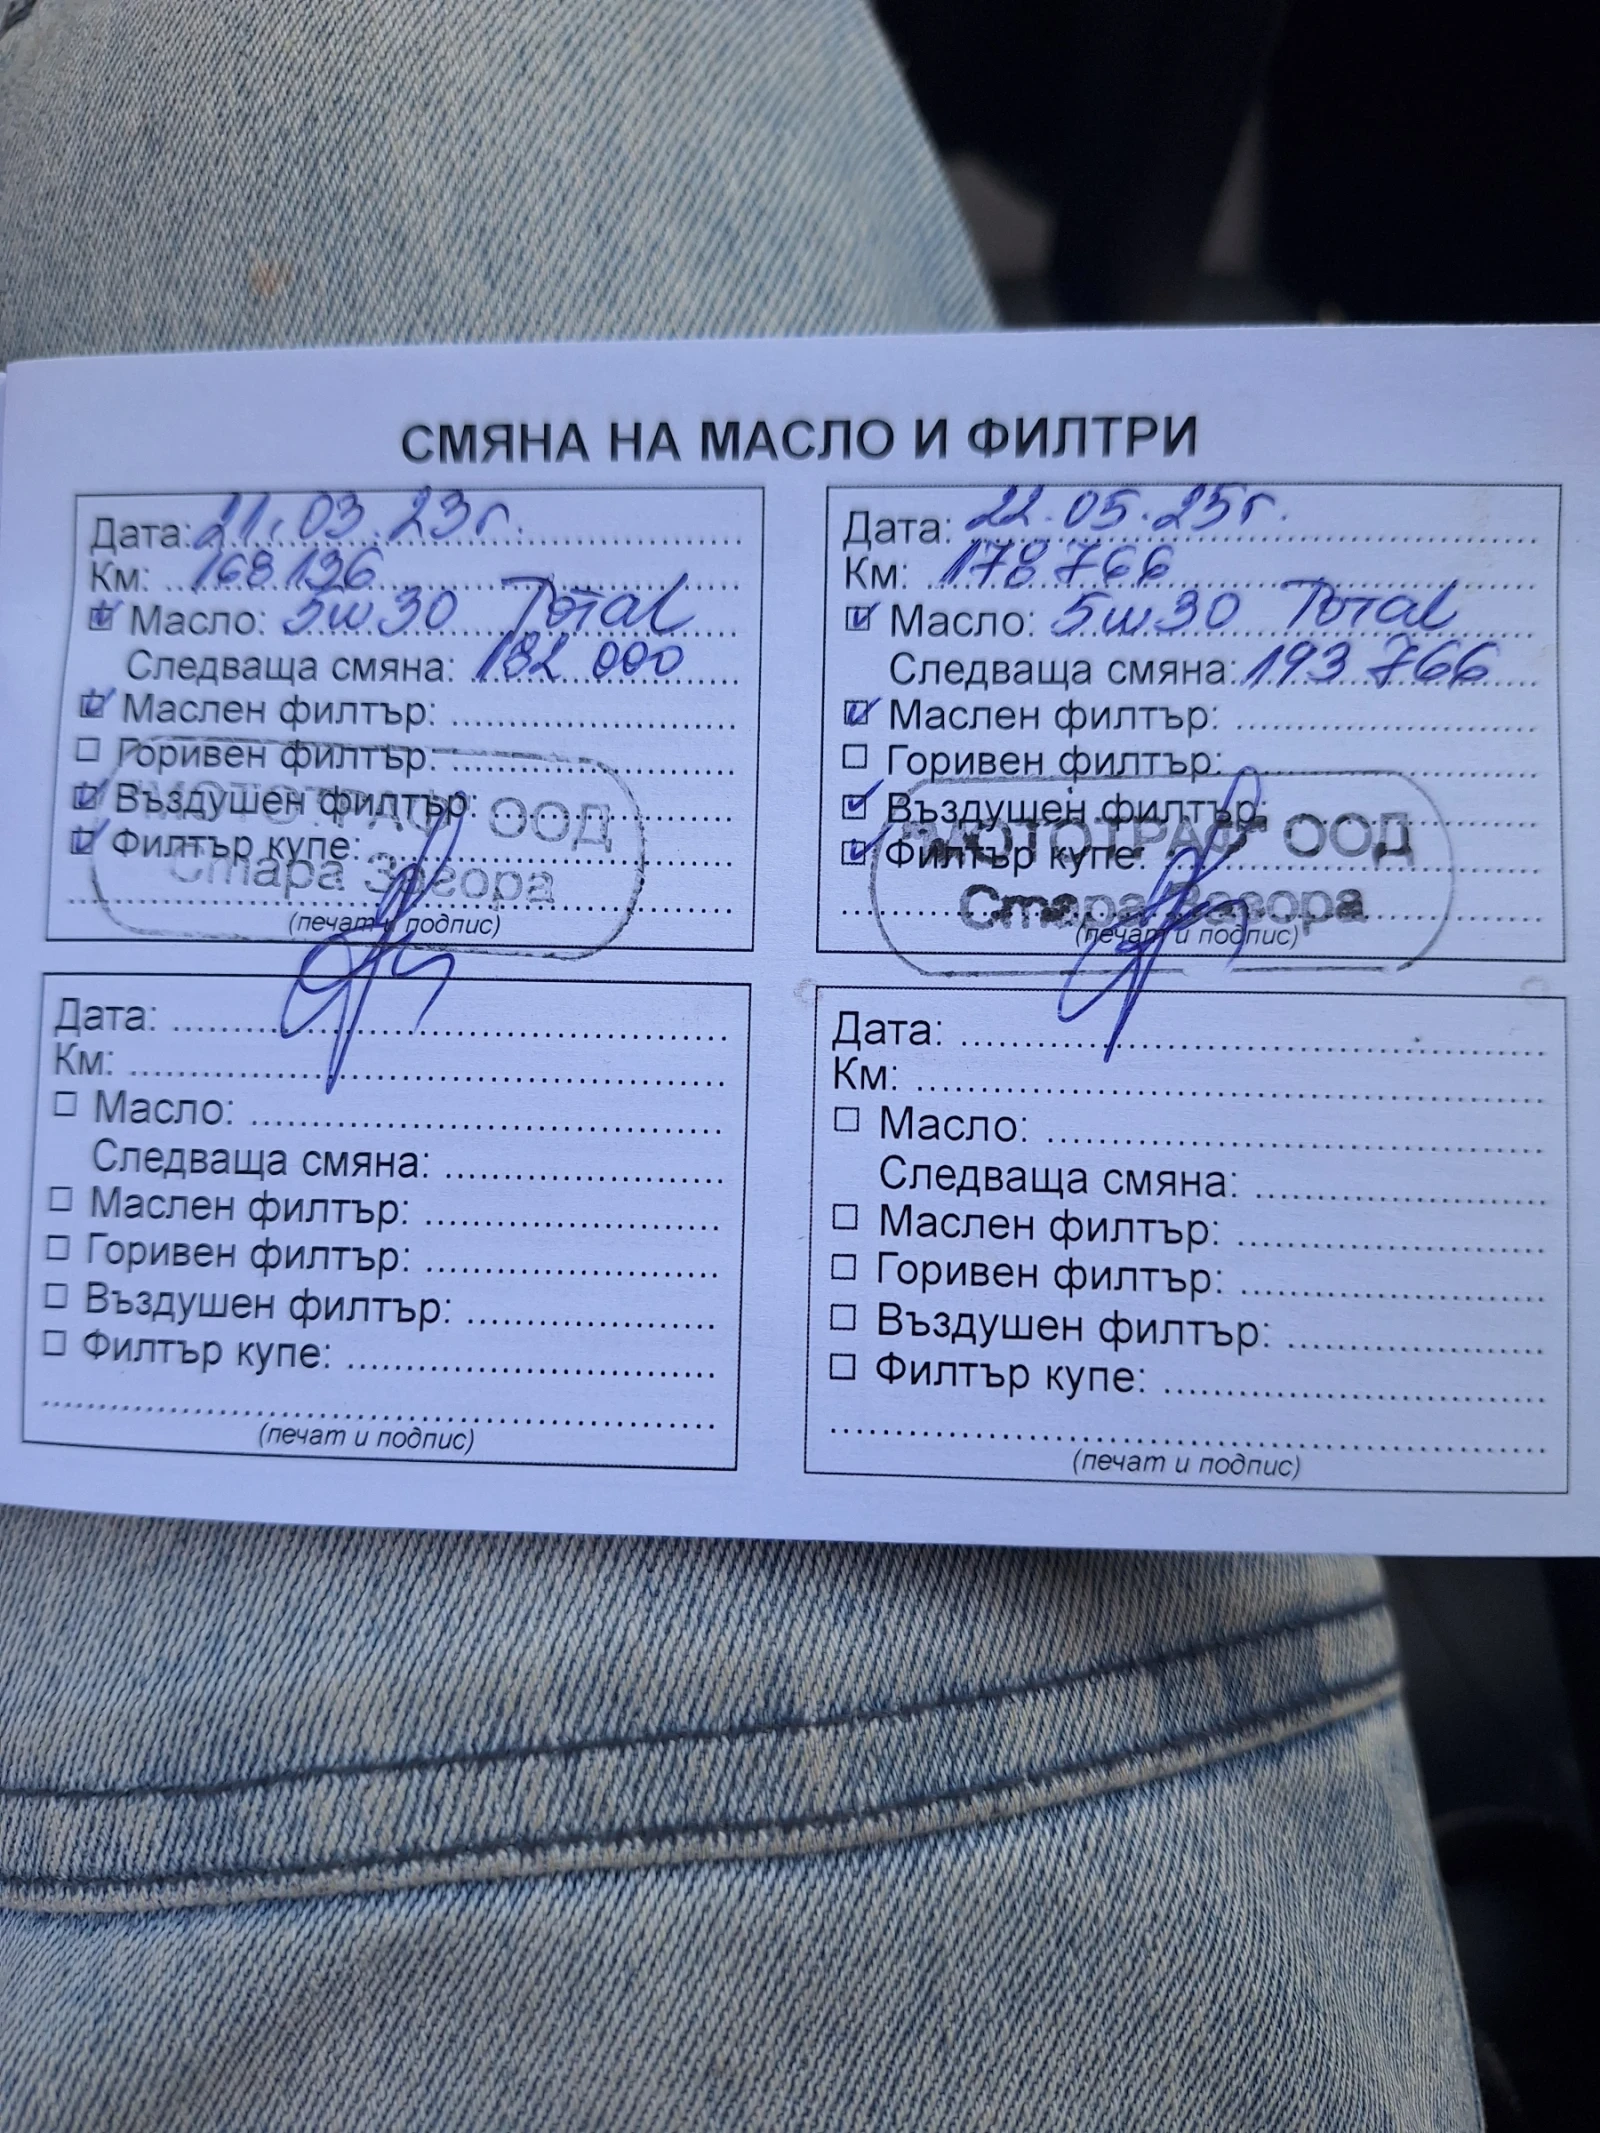 СМЯНА НА МАСЛО И ФИЛТРИ
Дата: 21.03.23г.
Км: 168 196
Масло: 5w30 Total
Следваща смяна: 182 000
Маслен филтър:
Горивен филтър:
Въздушен филтър:
Филтър купе:
ООД
Стара Загора
(печат и подпис)
Дата: 22.05.25г.
Км: 178 766
Масло: 5w30 Total
Следваща смяна: 193 766
Маслен филтър:
Горивен филтър:
Въздушен филтър:
Филтър купе:
ООД
Стара Загора
(печат и подпис)
Дата:
Км:
Масло:
Следваща смяна:
Маслен филтър:
Горивен филтър:
Въздушен филтър:
Филтър купе:
(печат и подпис)
Дата:
Км:
Масло:
Следваща смяна:
Маслен филтър:
Горивен филтър:
Въздушен филтър:
Филтър купе:
(печат и подпис)